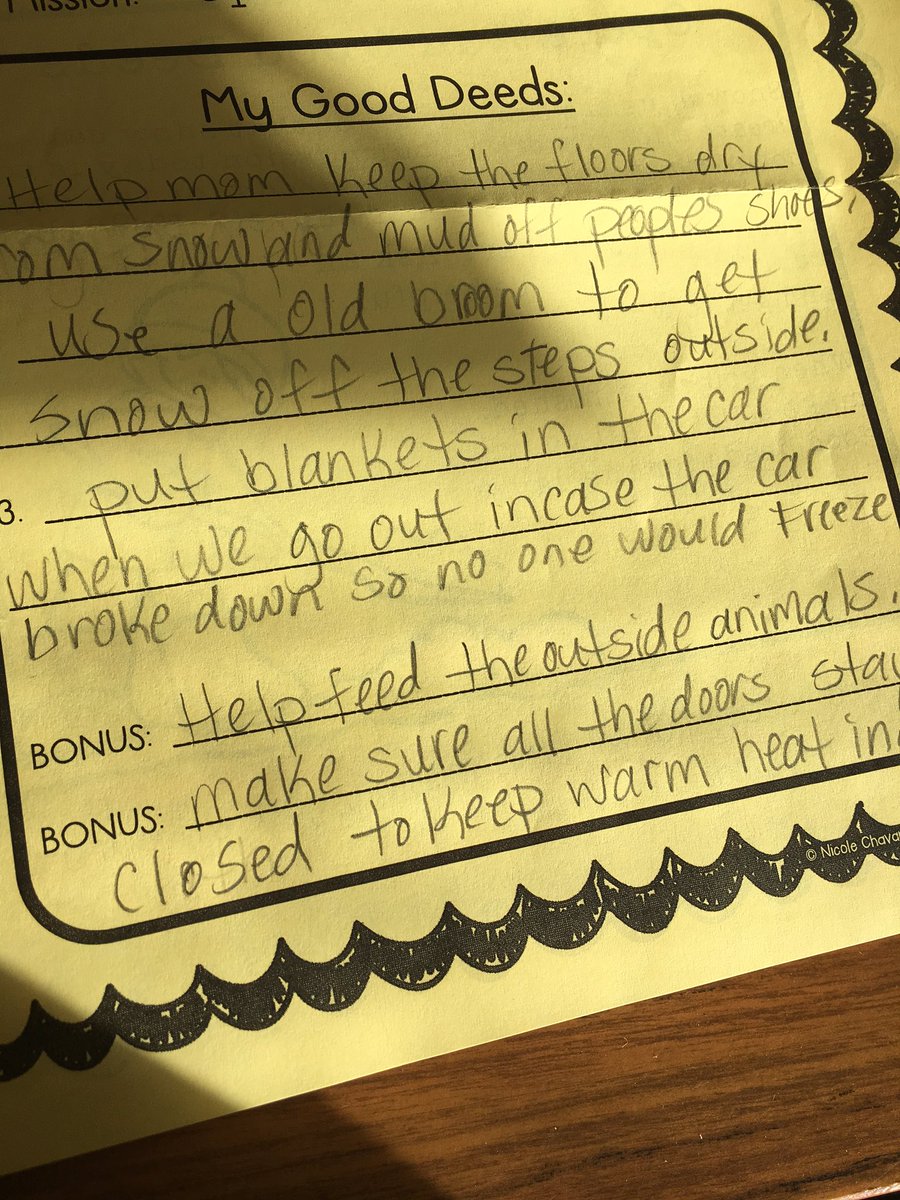 Mission:
My Good Deeds:
Help mom keep the floors dry
om snow and mud off peoples shoes,
use a old broom to get
snow off the steps outside.
3. put blankets in the car
when we go out incase the car
broke down so no one would freeze
BONUS: Help feed the outside animals.
BONUS: make sure all the doors stay
closed to keep warm heat in
© Nicole Chava